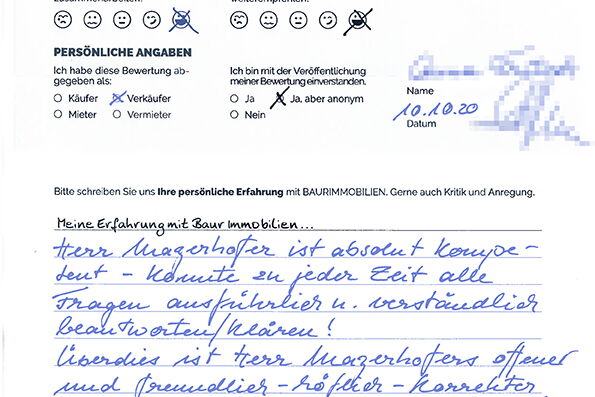 zusammenarbeiten. weiterempfehlen.
PERSÖNLICHE ANGABEN
Ich habe diese Bewertung ab-
gegeben als:
Käufer Verkäufer
Mieter Vermieter
Ich bin mit der Veröffentlichung
meiner Bewertung einverstanden.
Ja Ja, aber anonym
Nein
Name
10.10.20
Datum
Bitte schreiben Sie uns Ihre persönliche Erfahrung mit BAURIMMOBILIEN. Gerne auch Kritik und Anregung.
Meine Erfahrung mit Baur Immobilien...
Herr Mazerhofer ist absolut kompe-
tent - konnte zu jeder Zeit alle
Fragen ausführlich u. verständlich
beantworten/klären!
Überdies ist Herr Mazerhofers offener
und freundlich-höflich-korrekter